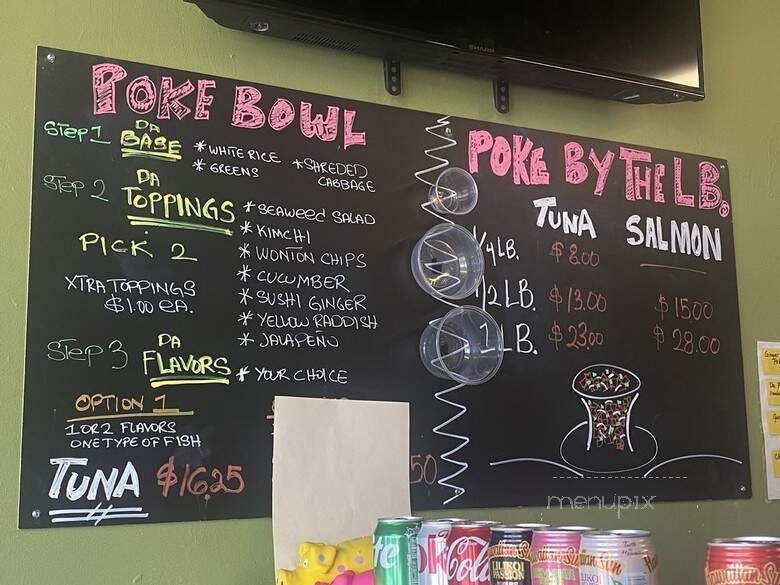 SHARP
POKE BOWL
Step 1 DA BASE
* WHITE RICE * SHREDED CABBAGE
* GREENS
Step 2 DA TOPPINGS
PICK 2
XTRA TOPPINGS
$1.00 ea.
* SEAWEED SALAD
* KIMCHI
* WONTON CHIPS
* CUCUMBER
* SUSHI GINGER
* YELLOW RADDISH
* JALAPEÑO
Step 3 DA FLAVORS
* YOUR CHOICE
OPTION 1
1 OR 2 FLAVORS
ONE TYPE OF FISH
TUNA $16.25
50
POKE BY THE LB.
TUNA SALMON
1/4 LB. $8.00
1/2 LB. $13.00 $15.00
1 LB. $23.00 $28.00
menupix
Coca
LILIKOI
PASSION
Hawaiian Sun